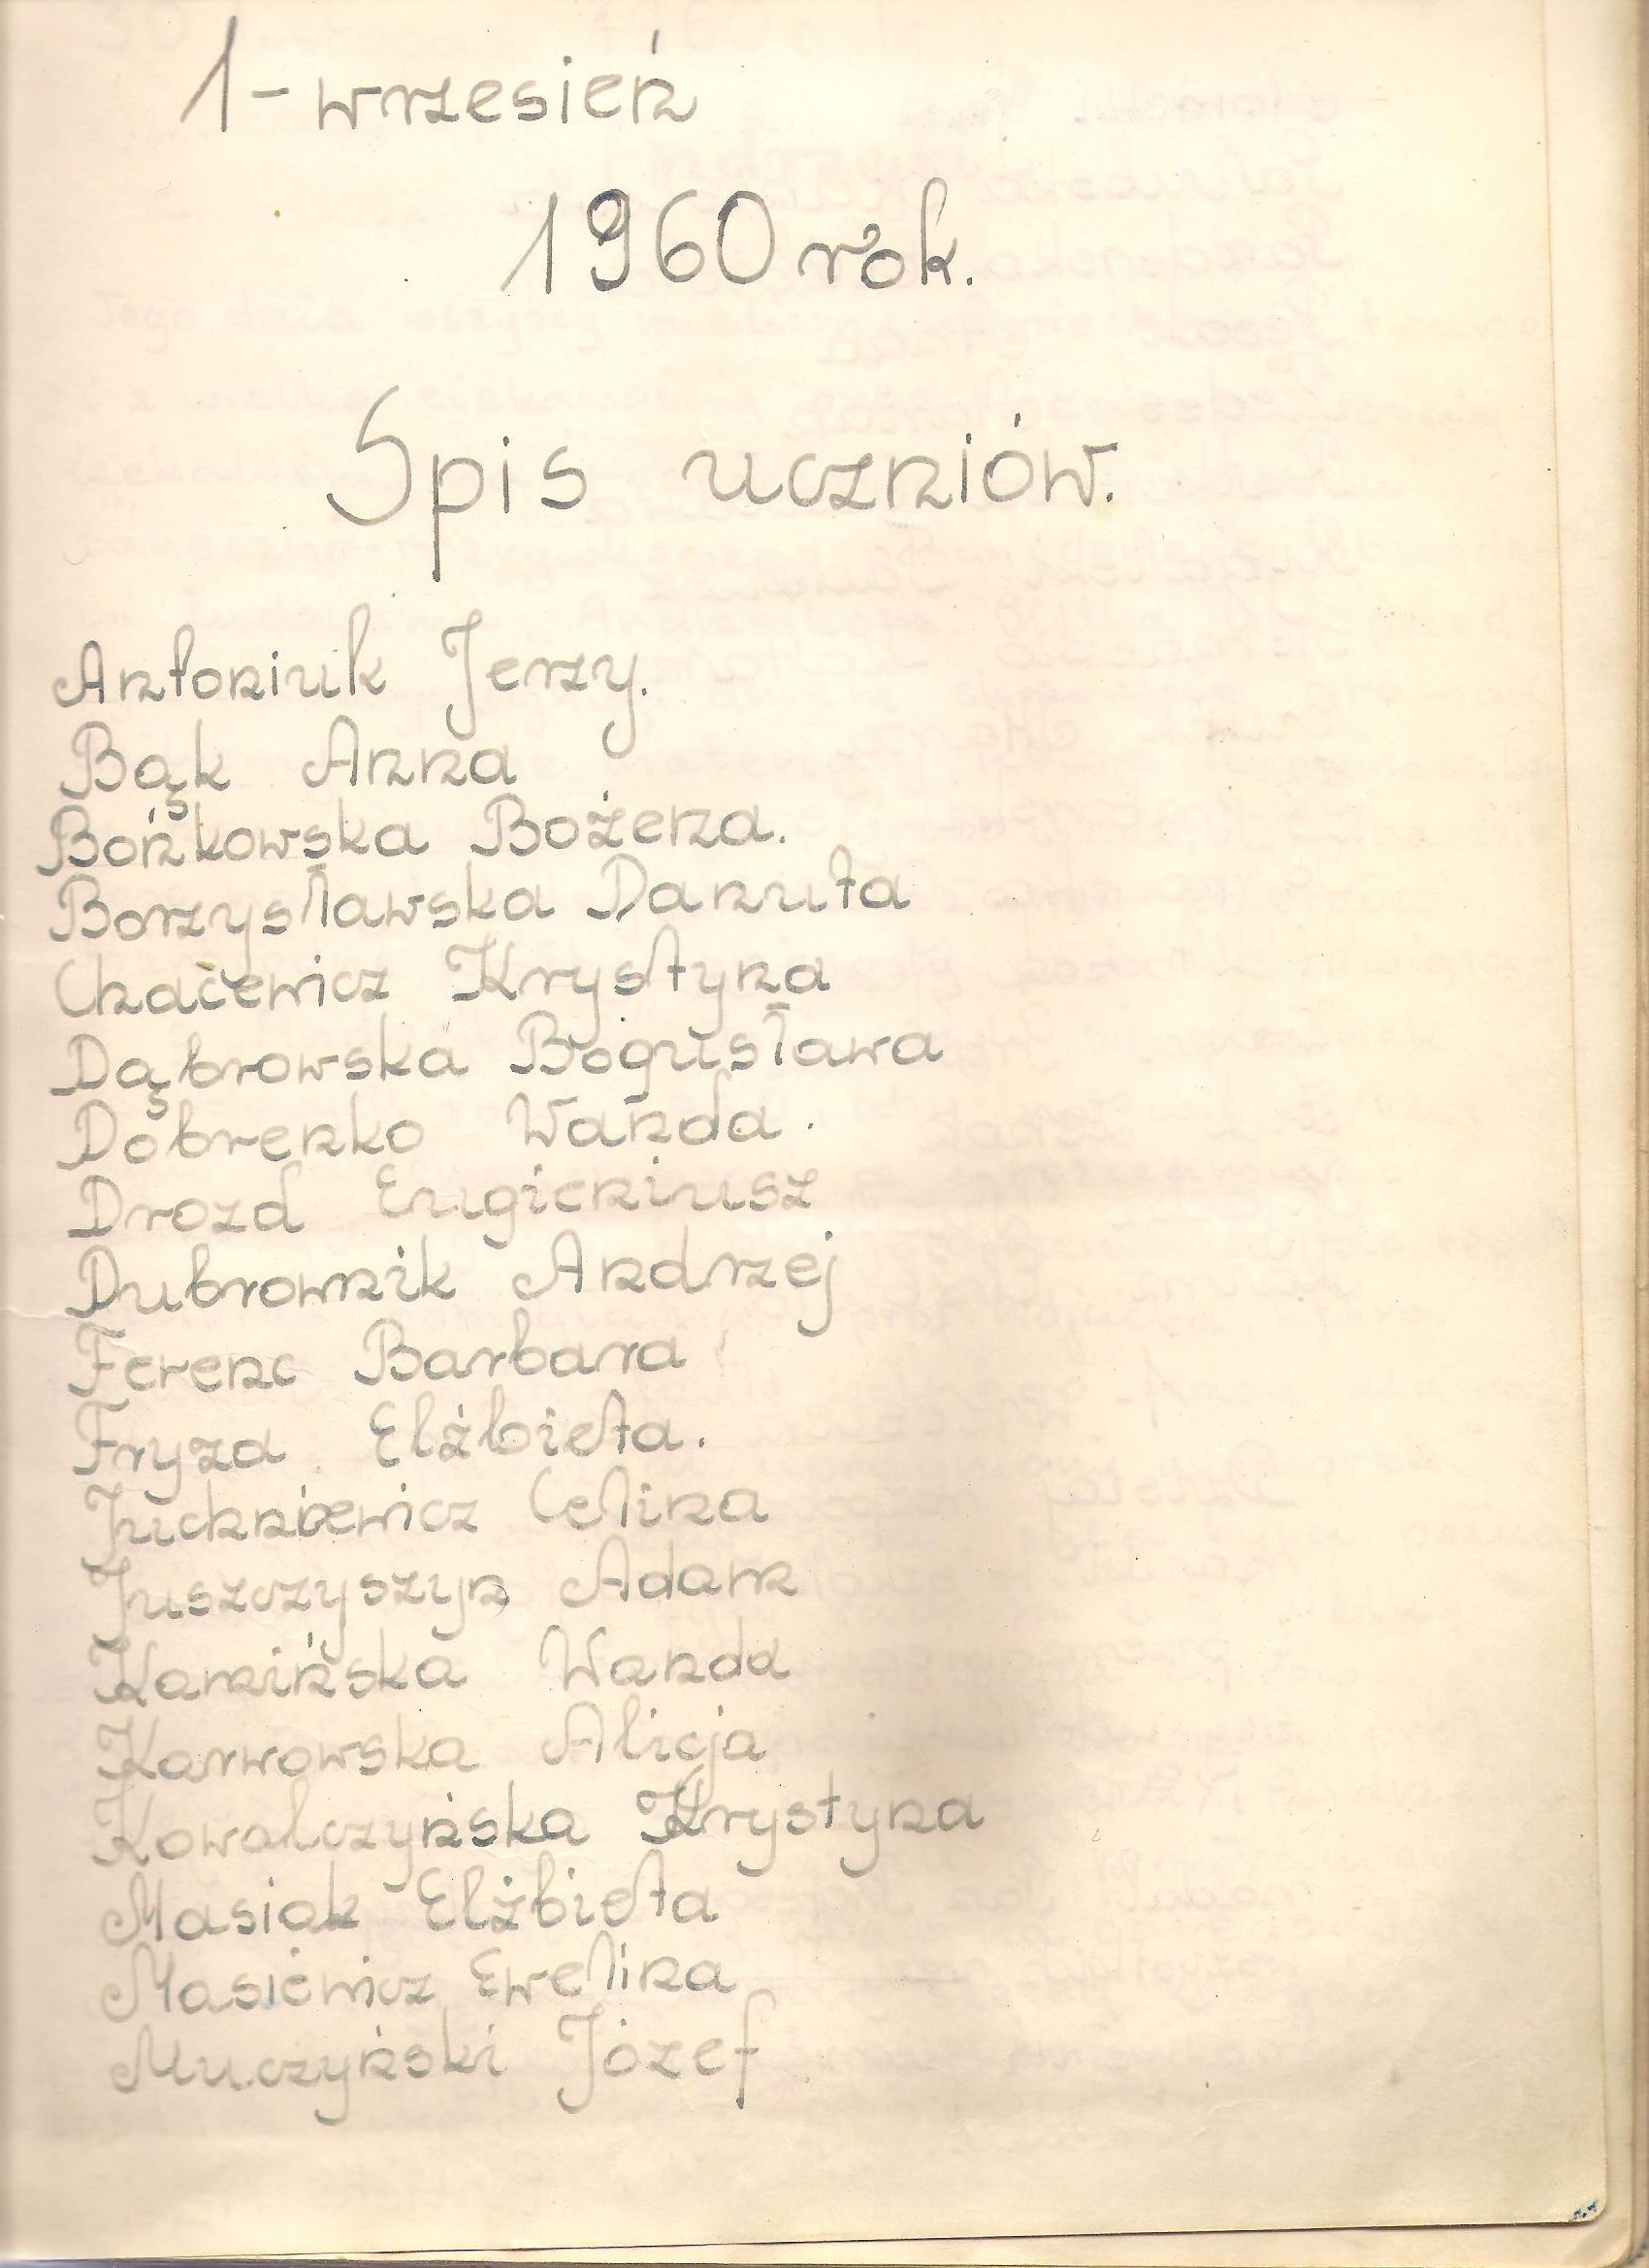 1 - wrzesień
1960 rok.
Spis uczniów.
Antoniuk Jerzy.
Bąk Anna
Bońkowska Bożena.
Borzysławska Danuta
Chacewicz Krystyna
Dąbrowska Bogusława
Dobrenko Wanda.
Drozd Eugieniusz
Dubrownik Andrzej
Ferenc Barbara
Fryza Elżbieta.
Juchniewicz Celina
Juszczyszyn Adam
Kamińska Wanda
Karwowska Alicja
Kowalczyńska Krystyna
Masiak Elżbieta
Masiewicz Ewelina
Muczyński Józef